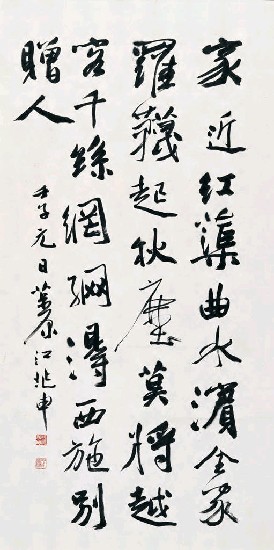 家近紅蕖曲水濱全家
羅韈起秋塵莫將越
客千絲網網得西施別
贈人
壬子元日茮原江兆申